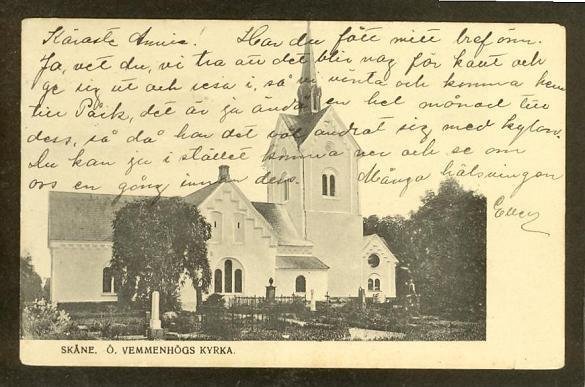 Käraste Annie! Har du fått mitt bref än.
Ja, vet du, vi tro att det blir nog för kallt och
ge sig ut och resa i, så vi vänta och komma hem
till Påsk, det är ju ändå en hel månad till
dess, så då har det väl ändrat sig med kylan.
Du kan ju i stället komma ner och se om
oss en gång innan dess. Många hälsningar
Ellen
SKÅNE. Ö. VEMMENHÖGS KYRKA.